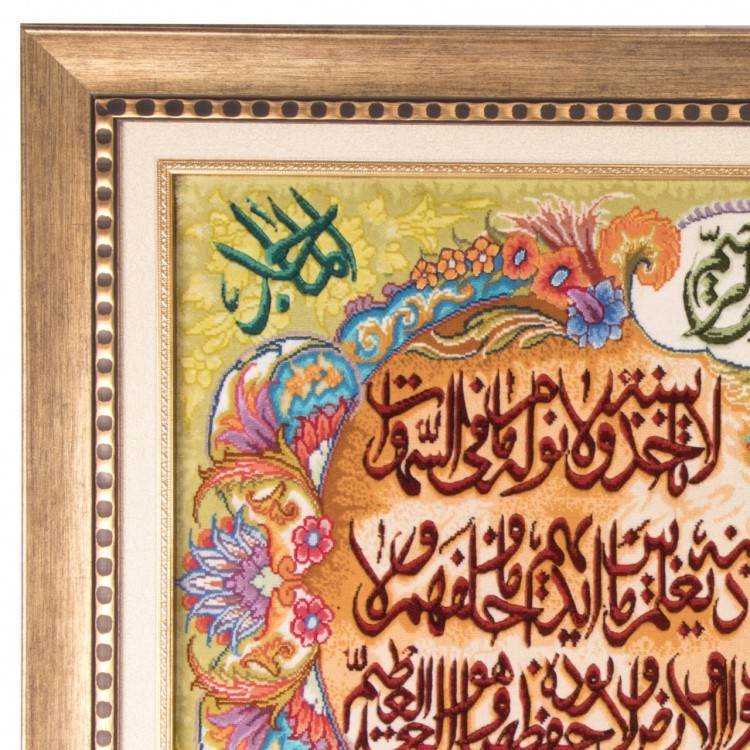 لا تاخذه سنة ولا نوم له ما فى السَّموات
يعلم ما بين ايديهم وما خلفهم ولا
والارض ولا يوده حفظهما وهو العلى العظيم